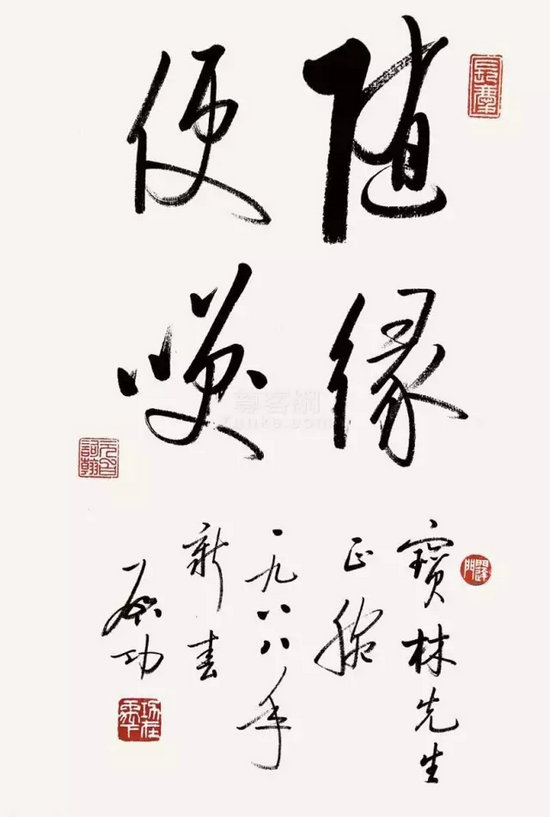 随緣
便咲
寶林先生
正腕
一九八八年
新春
啟功